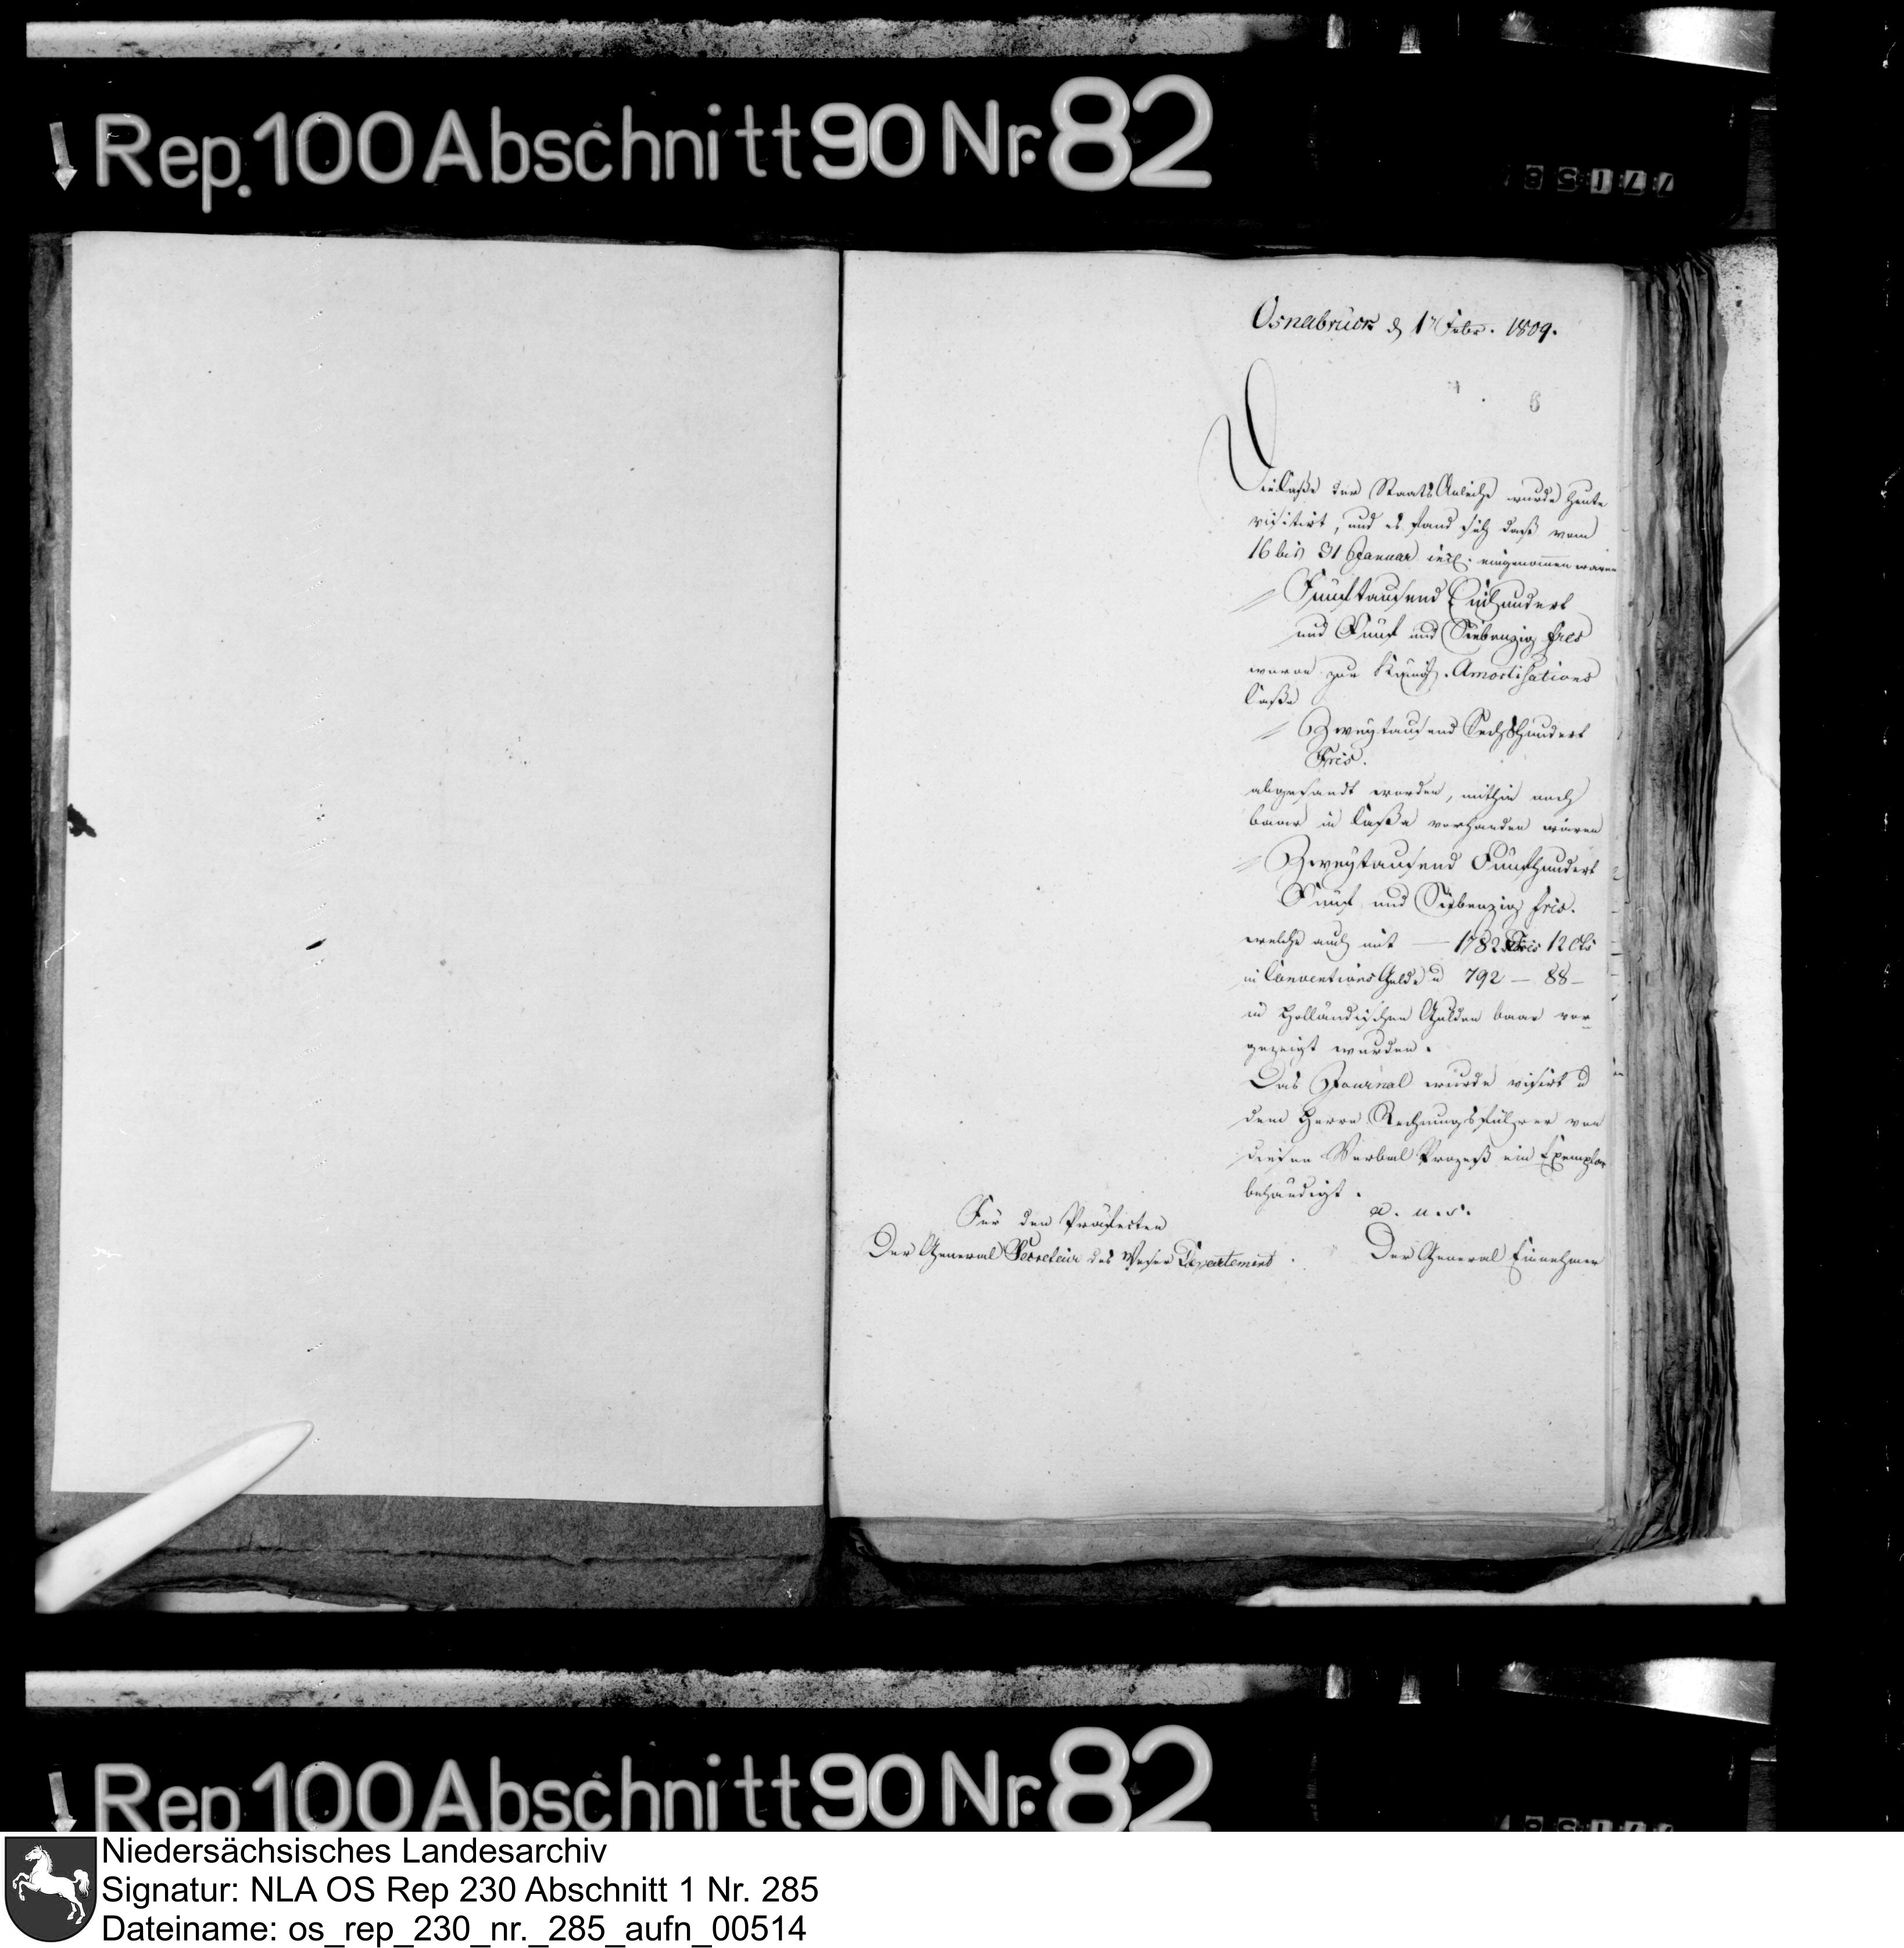 Rep. 100 Abschnitt 90 Nr. 82
Osnabrück d 1 Febr. 1809.
6
Die Caße der Staats Anleihe wurde heute
visitirt, und es fand sich daß vom
16 bis 31 Januar incl. eingenom̅en waren
Fünftausend Einhundert
und Fünf und Siebenzig frcs
waren zur Königl. Amortisations
Caße
Zweytausend Sechshundert
Frcs.
abgesandt worden, mithin noch
baar in Caße vorhanden wären
Zweytausend Fünfhundert
Fünf und Siebenzig frcs.
welche auch mit — 1782 Frcs 12 Cts
in Conventions Gelde u 792 — 88 —
in Holländischen Gulden baar vor
gezeigt wurden.
Das Journal wurde visirt u
dem Herrn Rechnungsführer von
diesen Verbal Prozeß ein Exemplar
behändigt.
a. u. s.
Für den Präfecten
Der General Secretair des Weser Departement.
Der General Einnehmer
Rep 100 Abschnitt 90 Nr. 82
Niedersächsisches Landesarchiv
Signatur: NLA OS Rep 230 Abschnitt 1 Nr. 285
Dateiname: os_rep_230_nr._285_aufn_00514